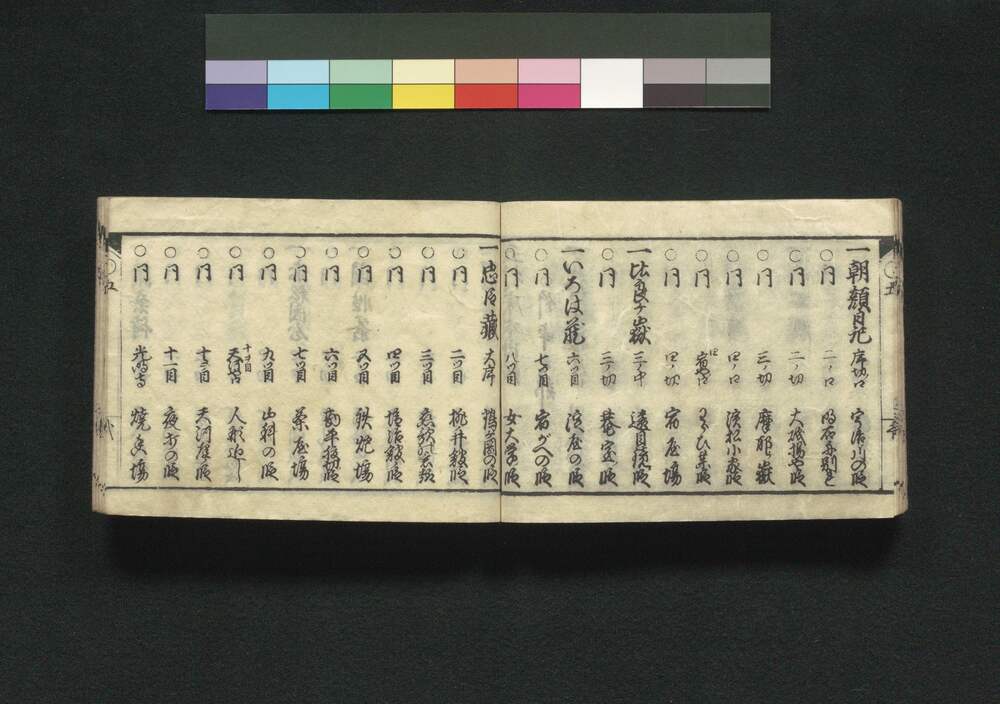 一朝顔日記 序切口 宇治川の段
○同 二ノ口 明石舟別れ
○同 二ノ切 大磯揚や段
○同 三ノ切 摩耶ヶ嶽
○同 四ノ口 濱松小家段
○同 宿や口 わらひ薬段
○同 四ノ切 宿屋場
一比良ヶ嶽 三ノ中 遠目鏡段
○同 三ノ切
一いろは蔵 六つ目 屋の段
○同 七つ目 宿がへの段
○同 八つ目 女大学の段
一忠臣蔵 大序 鶴が岡の段
○同 二つ目 桃井館段
○同 三つ目
○同 四つ目 塩冶館段
○同 五つ目 鉄炮場
○同 六つ目 勘平復切段
○同 七つ目 茶屋場
○同 九つ目 山科の段
○同 十つ目 天河や口 人形廻し
○同 十つ目 天河屋段
○同 十一目 夜討の段
○同 光明寺 焼香場